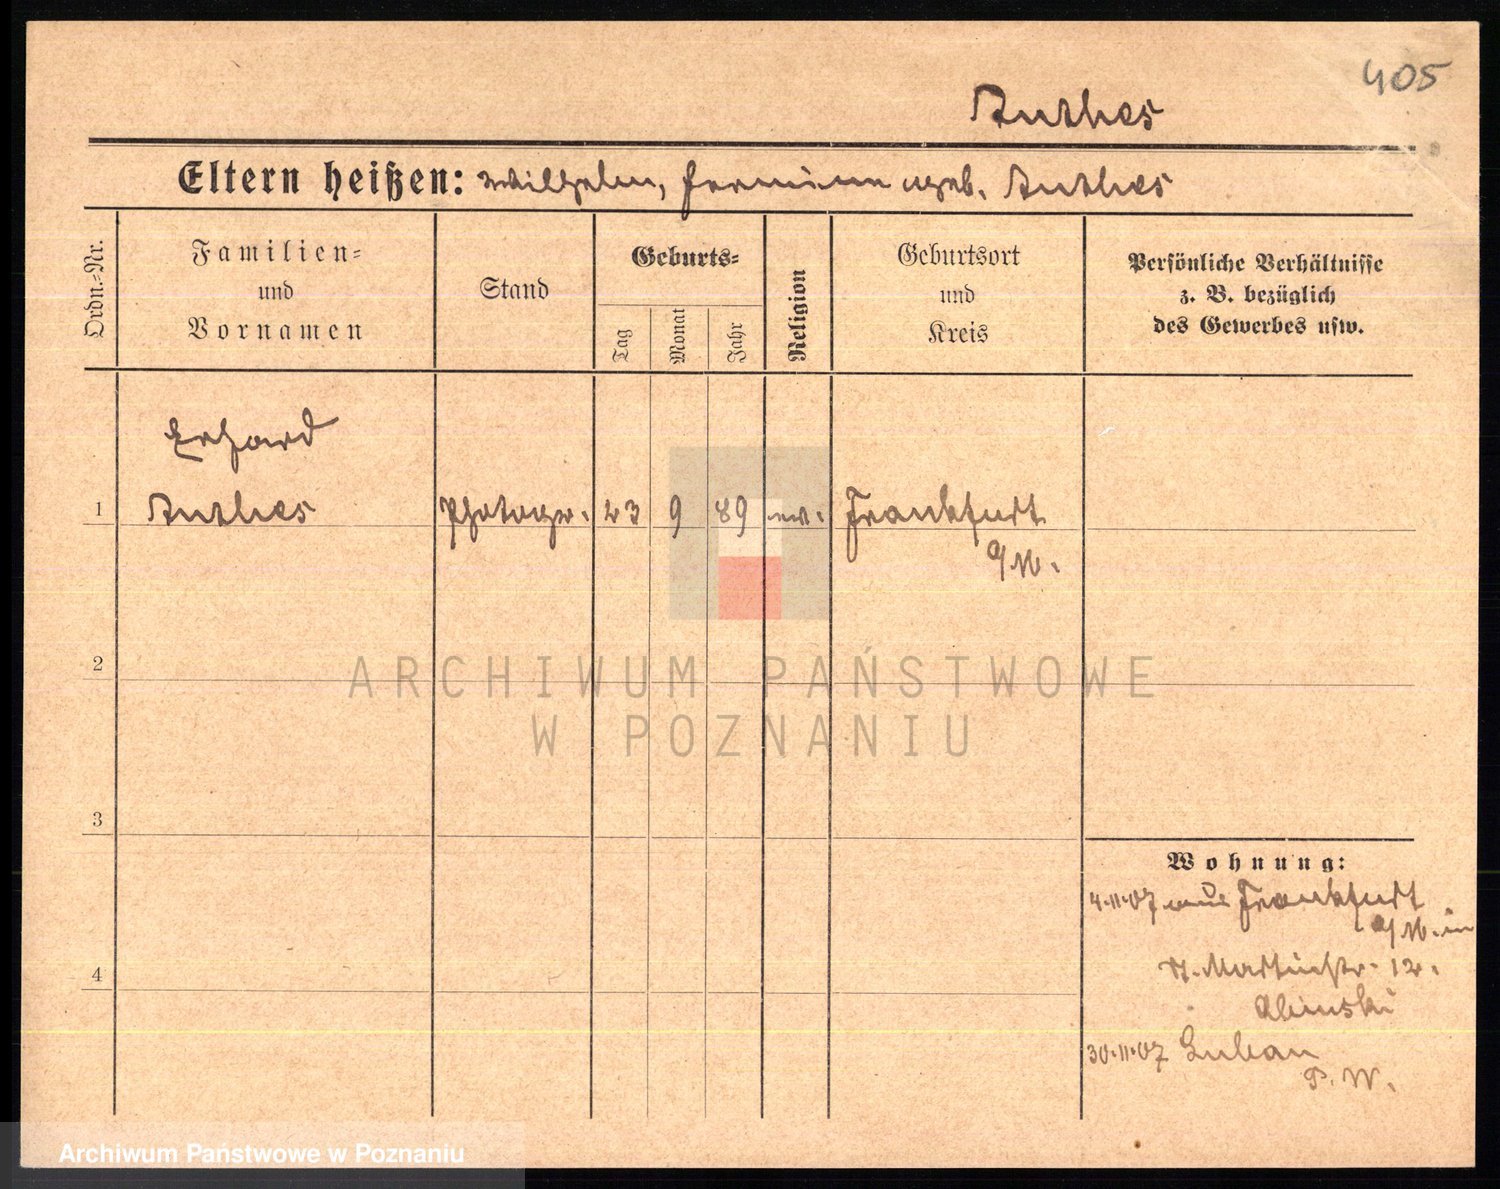 405
Anthes
Eltern heißen: Wilhelm, Hermine geb. Anthes
Ordn.-Nr.
Familien-
und
Vornamen
Stand
Geburts-
Tag
Monat
Jahr
Religion
Geburtsort
und
Kreis
Persönliche Verhältnisse
z. B. bezüglich
des Gewerbes usw.
Erhard
1 Anthes Photogr. 23 9 89 ev. Frankfurt
a/M.
2
3
4
Wohnung:
4.11.07 aus Frankfurt
a/M. in
St. Martinstr. 12.
30.11.07 Luban
P. W.
ARCHIWUM PAŃSTWOWE
W POZNANIU
Archiwum Państwowe w Poznaniu